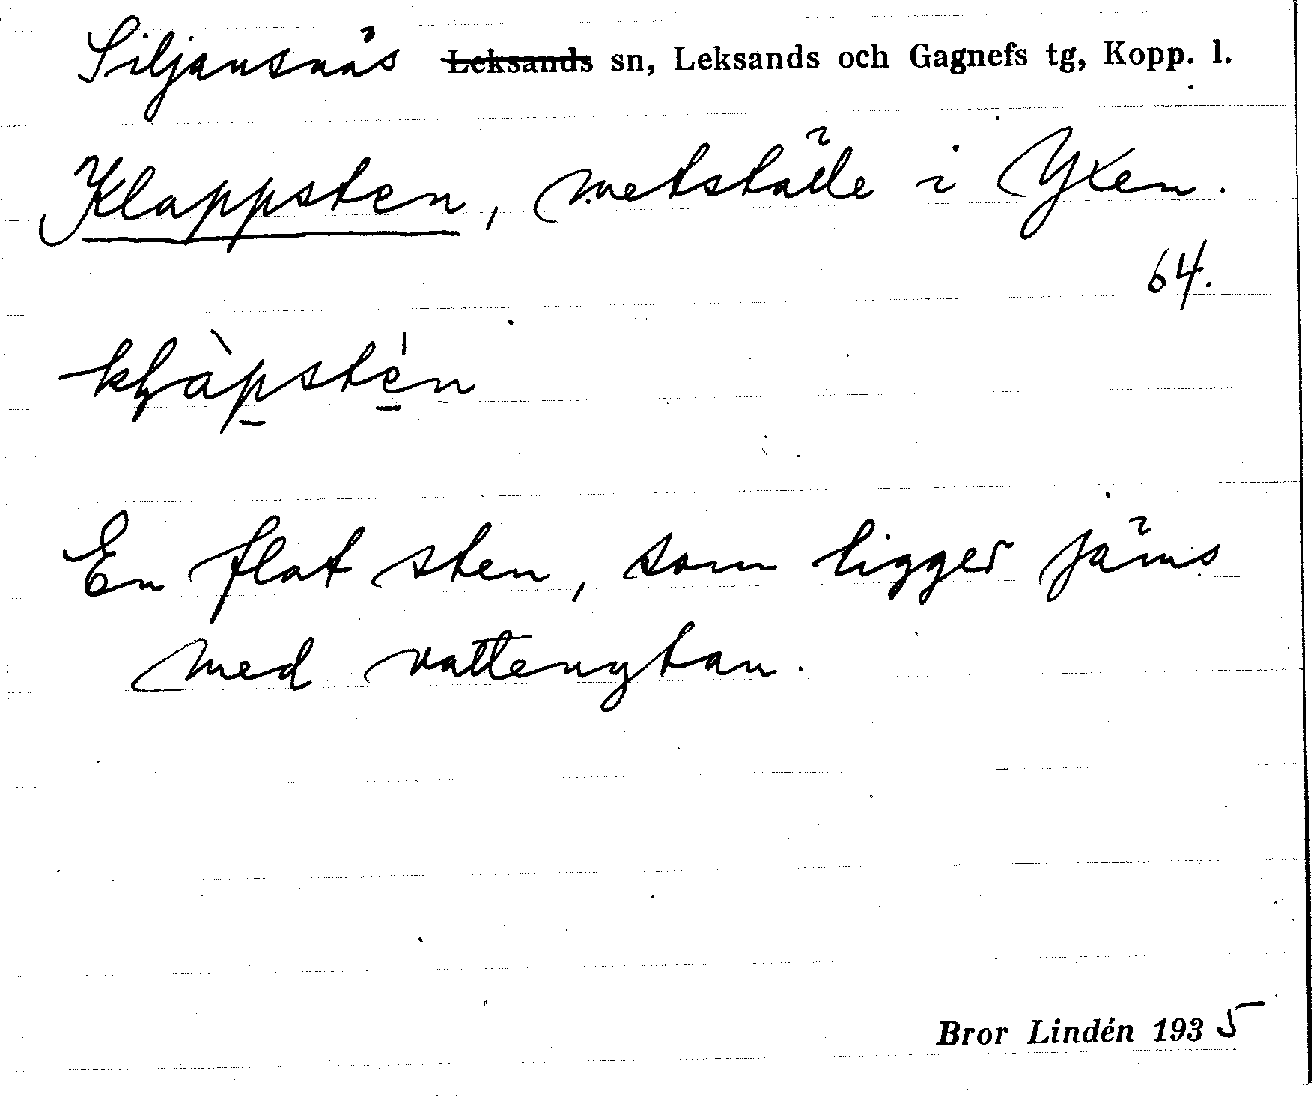 Siljansnäs ~~Leksands~~ sn, Leksands och Gagnefs tg, Kopp. l.
Klappsten, metställe i Yxen.
64.
En flat sten, som ligger jäms
med vattenytan.
Bror Lindén 1935